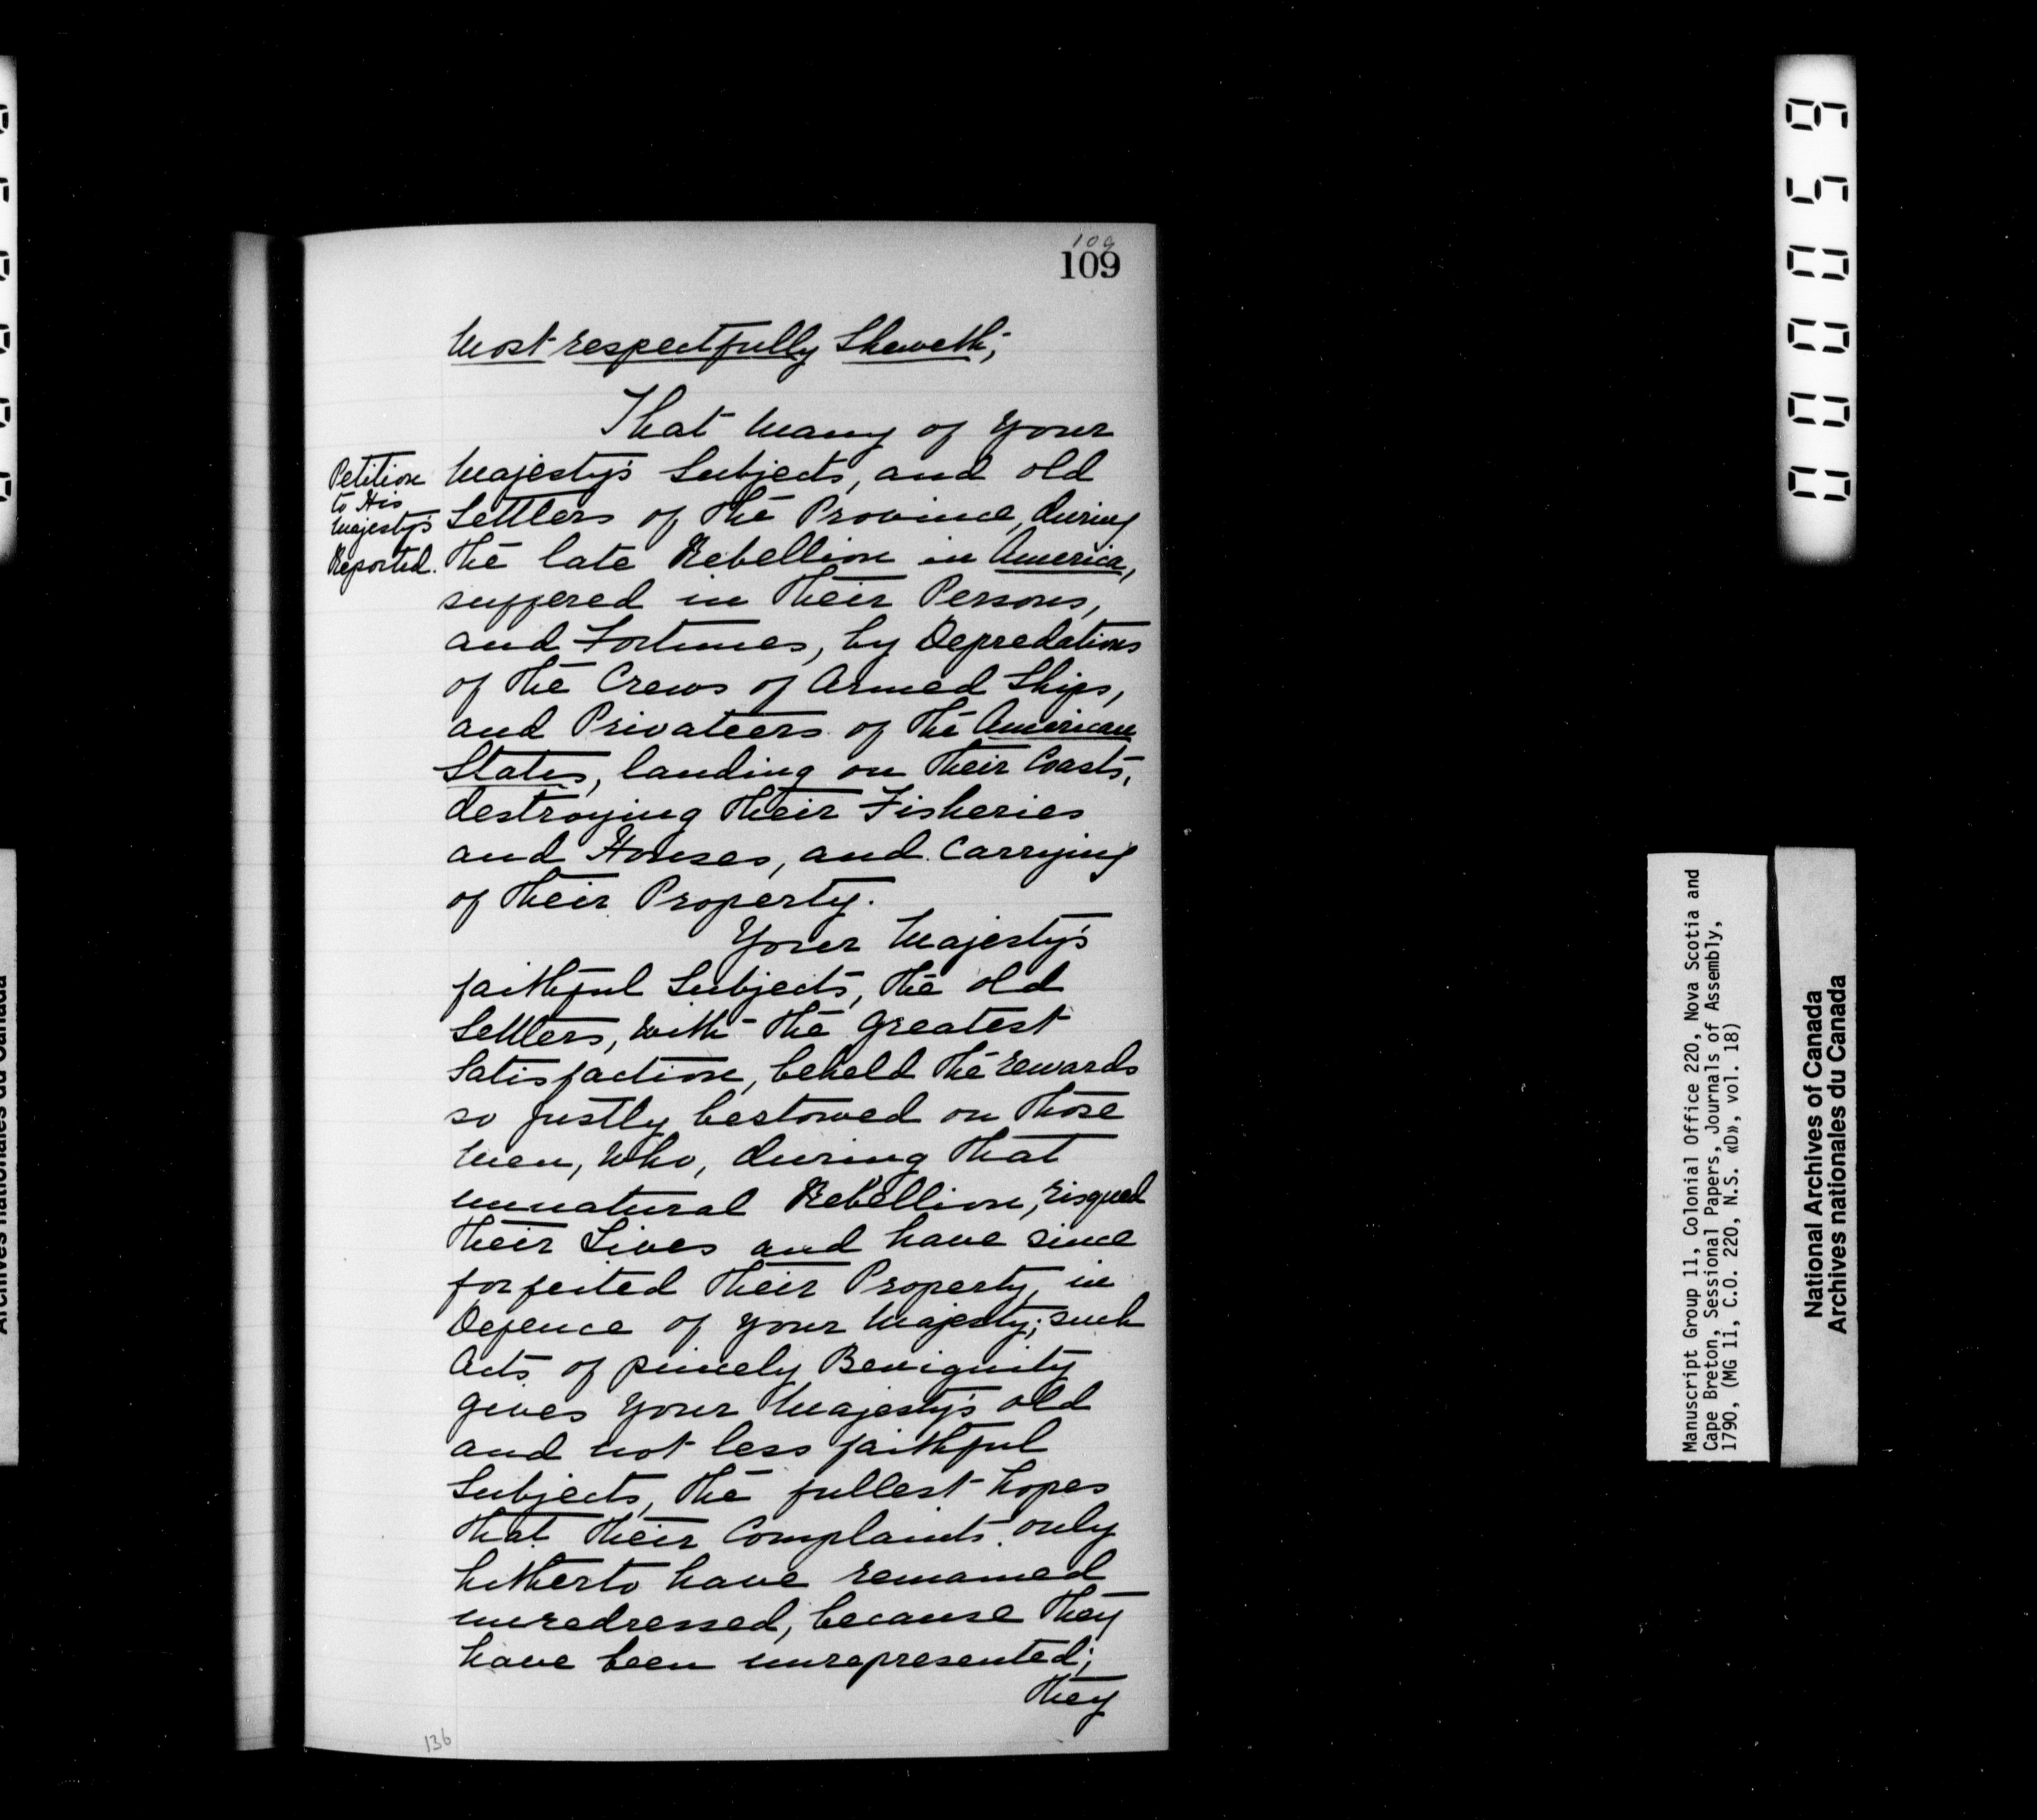 109
109
Most respectfully Sheweth;
That many of Your
Petition to His Majesty's Reported.
Majesty's Subjects, and old
Settlers of the Province, during
the late Rebellion in America,
suffered in their Persons,
and Fortunes, by Depredations
of the Crews of Armed Ships,
and Privateers of the American
States, landing on their Coasts,
destroying their Fisheries
and Houses, and Carrying
of their Property.
Your Majesty's
faithful Subjects, the old
Settlers, with the greatest
Satisfaction, beheld the rewards
so justly bestowed on those
Men, who, during that
unnatural Rebellion, risqued
their Lives and have since
forfeited their Property, in
Defence of your Majesty; such
Acts of princely Benignity
gives your Majesty's old
and not less faithful
Subjects, the fullest hopes
that their Complaints only
hitherto have remained
unredressed, because they
have been unrepresented;
they
136
000059
Manuscript Group 11, Colonial Office 220, Nova Scotia and
Cape Breton, Sessional Papers, Journals of Assembly,
1790, (MG 11, C.O. 220, N.S. «D», vol. 18)
National Archives of Canada
Archives nationales du Canada